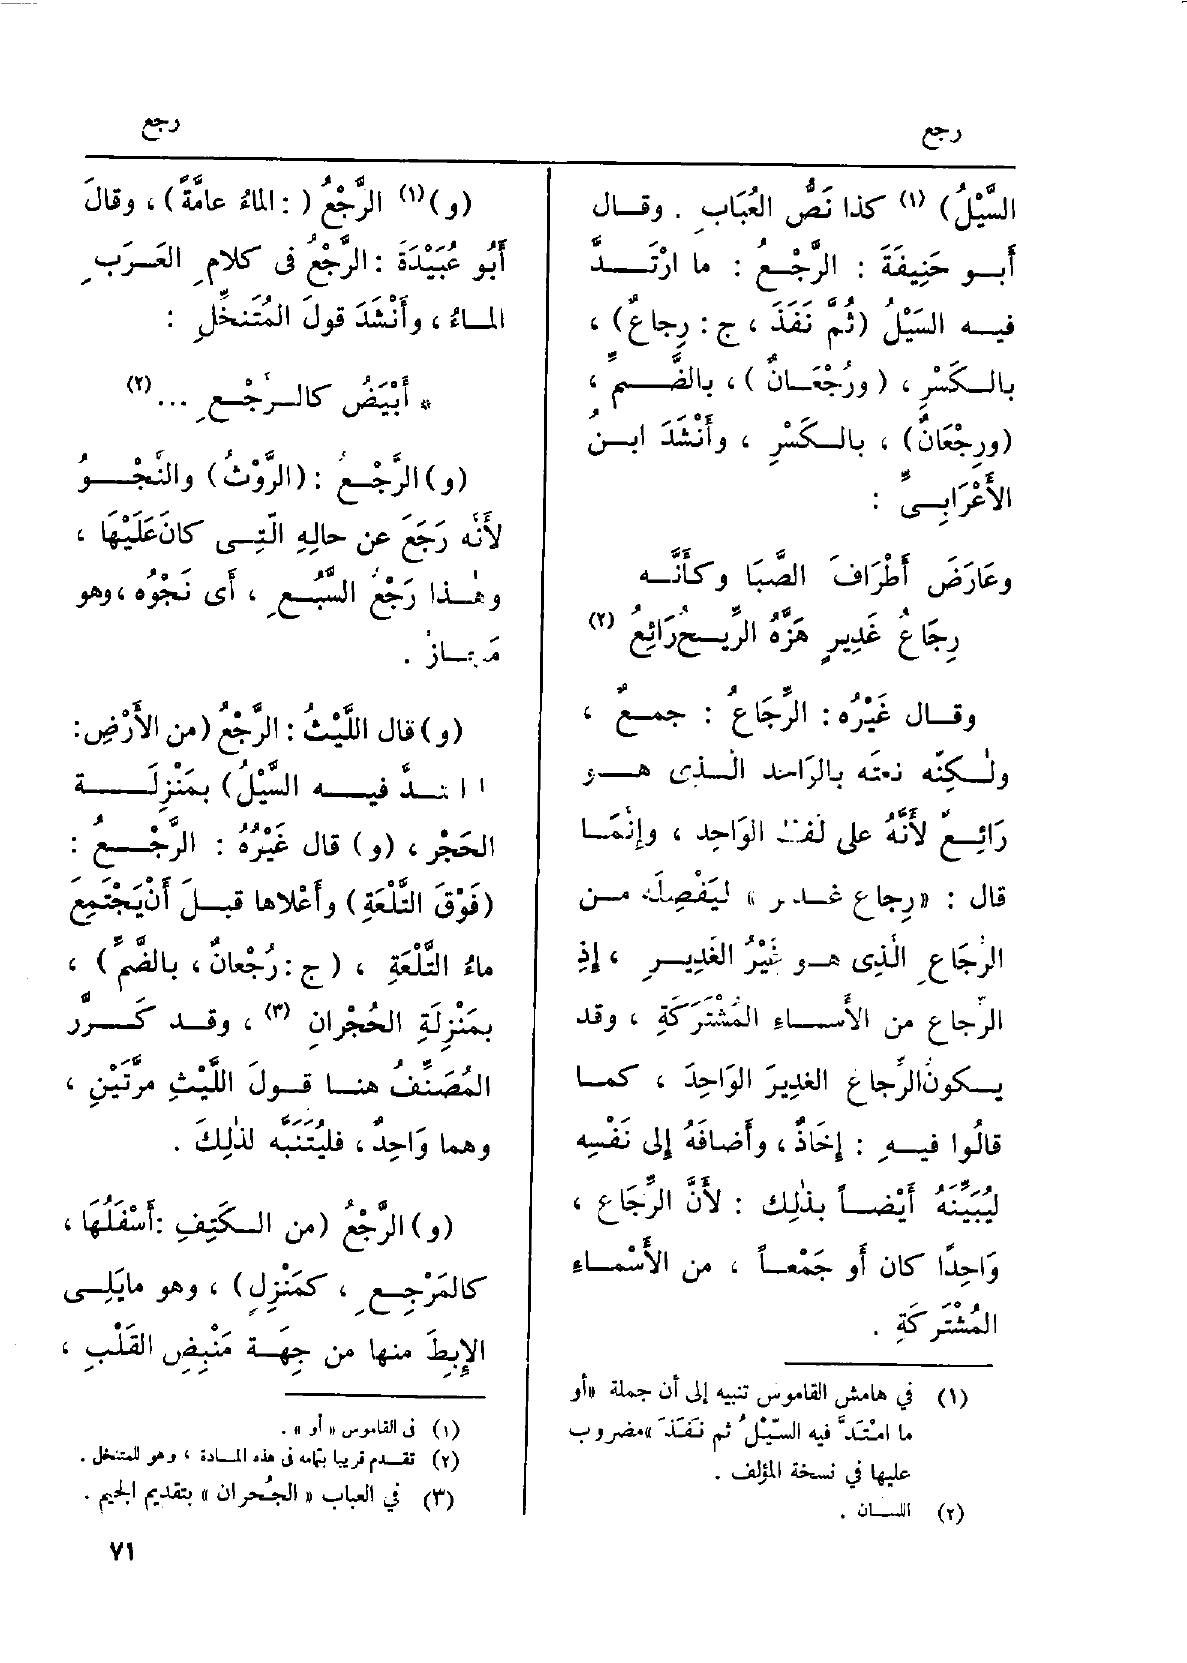 رجع
رجع
السَّيْلُ) (١) كذا نَصُّ العُبَابِ . وقــال
أَبــو حَنِيفَةَ : الرَّجْــعُ : ما ارْتَــدَّ
فيــه السَّيْلُ (ثُمَّ نَفَذَ ، ج : رِجاعٌ) ،
بالــكَسْرِ ، (ورُجْعَــانٌ) ، بالضَّــمِّ ،
(ورِجْعَانٌ) ، بالــكَسْرِ ، وأَنْشَدَ ابــنُ
الأَعْرَابِــىِّ :
وعَارَضَ أَطْرَافَ الصَّبَا وكَأَنَّــه
رِجَاعُ غَدِيرٍ هَزَّهُ الرِّيــحُ رَائِعُ (٢)
وقــال غَيْرُه : الرِّجَاعُ : جمــعٌ ،
ولٰــكِنَّه نعتَه بالوَاحد الَّــذى هــو
رَائِــعٌ لأَنَّهُ على لَفْظ الوَاحِد ، وإِنَّمَــا
قال : «رِجاع غــدير» لِيَفْصِلَه مــن
الرِّجَاعِ الَّذِى هــو غَيْرُ الغَدِيــرِ ، إِذِ
الرِّجاع من الأَســماءِ المُشْتَرَكَةِ ، وقد
يــكون الرِّجاع الغديرَ الوَاحِدَ ، كمــا
قالُوا فيــهِ : إِخَاذٌ ، وأَضافَهُ إِلى نَفْسِه
لِيُبَيِّنَهُ أَيْضــاً بذٰلِك : لأَنَّ الرِّجَاع ،
وَاحِدًا كان أَو جَمْعــاً ، من الأَسْمــاءِ
المُشْتَركَةِ .
(١) في هامش القاموس تنبيه إلى أن جملة «أو
ما امتَدَّ فيه السَّيْلُ ثم نَفَذَ» مضروب
عليها في نسخة المؤلف .
(٢) اللســان .
(و) (١) الرَّجْعُ ( : الماءُ عامَّةً) ، وقالَ
أَبُو عُبَيْدَةَ : الرَّجْعُ فى كلامِ العَــرَبِ
المــاءُ ، وأَنْشَدَ قولَ المُتَنخِّلِ :
* أَبْيَضُ كالــرَّجْــعِ ... (٢)
(و) الرَّجْــعُ : (الرَّوْثُ) والنَّجْــوُ
لأَنَّه رَجَعَ عن حالِهِ الَّتِــى كانَ عَلَيْهَا ،
وهٰــذا رَجْعُ السَّبُــعِ ، أَى نَجْوُه ، وهو
مَجــازٌ .
(و) قال اللَّيْثُ : الرَّجْعُ (من الأَرْضِ :
ما امتــدَّ فيــه السَّيْلُ) بمَنْزِلَــة
الحَجْر ، (و) قال غَيْرُهُ : الرَّجْــعُ :
(فَوْقَ التَّلْعَةِ) وأَعْلاها قبــلَ أَنْ يَجْتَمِعَ
ماءُ التَّلْعَةِ ، (ج : رُجْعانٌ ، بالضَّمِّ) ،
بمَنْزِلَةِ الحُجْرانِ (٣) ، وقــد كَــرَّرَ
المُصَنِّفُ هنــا قــولَ اللَّيْثِ مرَّتَيْنِ ،
وهما وَاحِدٌ ، فليُتَنَبَّه لذٰلِكَ .
(و) الرَّجْعُ (من الــكَتِفِ : أَسْفَلُهَا ،
كالمَرْجِــعِ ، كمَنْزِلٍ) ، وهو مايَلِــى
الإِبِطَ منها من جِهَــة مَنْبِضِ القَلْبِ ،
(١) فى القاموس «أو» .
(٢) تقــدم قريبا بتمامه فى هذه المــادة ، وهو للمتنخل .
(٣) في العباب «الجُحران» بتقديم الجيم .
٧١